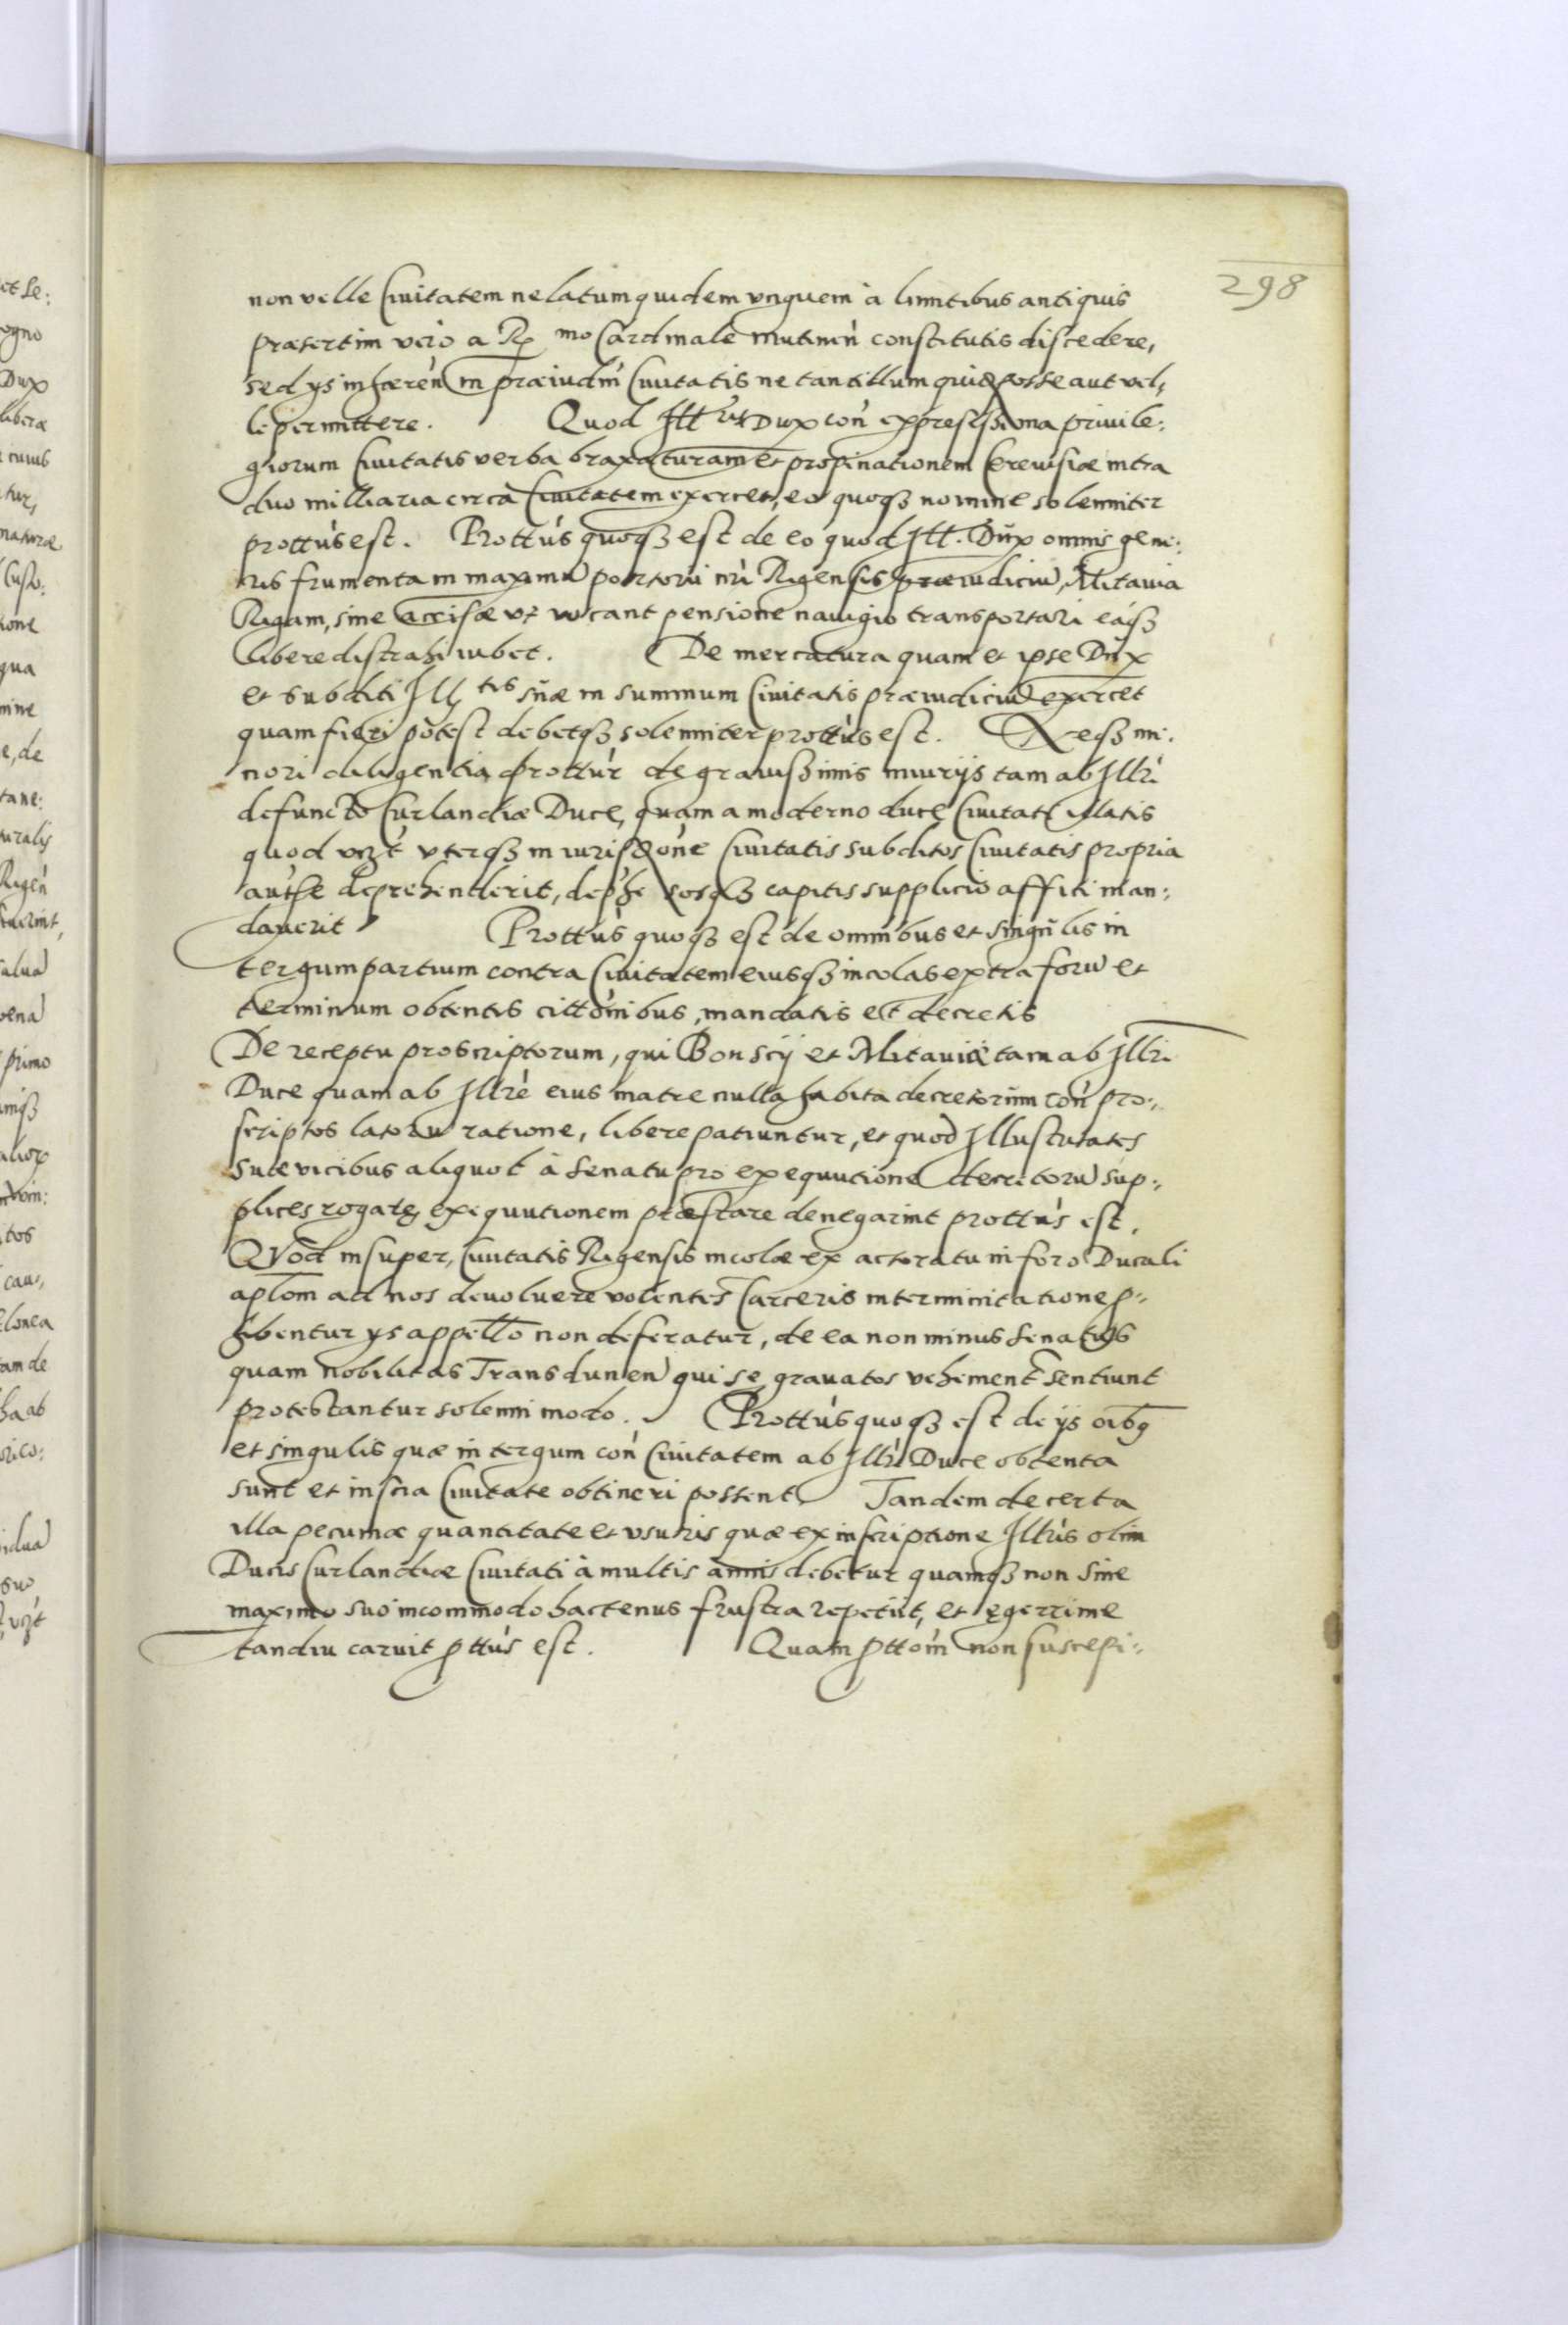 298
non velle Ciuitatem ne latum quidem vnguem à limitibus antiquis
præsertim vero a R mo Cardinale mutinen̄ constitutis discedere,
sed ijs inhæren̄ in præiudm̄ Ciuitatis ne tantillum quid posse aut vel,
le permittere. Quod Ill Dux con̄ expressissima priuile:
giorum Ciuitatis verba braxaturam et propinationem Cereuisiæ intra
duo milliaria circa Ciuitatem exercet, eo quoqȝ nomine solenniter
prottus est. Prottus quoqȝ est de eo quod Ill. Dux omnis gene:
ris frumenta in maximū portorii nr̄i Rigensis præiudiciū, Mitauia
Rigam, sine accisæ vt vocant pensione nauigio transportari eaqȝ
libere distrahi iubet. De mercatura quam et ipse Dux
et subditi Ill tis suæ in summum Ciuitatis præiudiciū exercet
quam fieri potest debetqȝ solenniter prottus est. Neqȝ mi:
nori diligentia prottur de grauissimis iniurijs tam ab Illri
defuncto Curlandiæ Duce, quam a moderno duce Ciuitati illatis
quod vizt vterqȝ in iurisdōne Ciuitatis subditos Ciuitatis propria
authe deprehenderit, eosqȝ capitis supplicio affici man:
dauerit Prottus quoqȝ est de omnibus et singulis in
tergum partium contra Ciuitatem eiusqȝ incolas extra forū et
terminum obtentis cittōnibus, mandatis et decretis
De receptu proscriptorum, qui Bonscij et Mitauiæ tam ab Illri
Duce quam ab Illre eius matre nulla habita decretorum con̄ pro:
scriptos latorū ratione, libere patiuntur, et quod Illustritates
suæ vicibus aliquot à Senatu pro exequutione decretorū sup:
plices rogatę exequutionem præstare denegarint prottus est.
Quod insuper, Ciuitatis Rigensis incolæ ex actoratu in foro Ducali
aplom̄ ad nos deuoluere volentes Carceris interminitatione p:
hibentur ijs appello non deferatur, de ea non minus Senatus
quam nobilitas Transdunen̄ qui se grauatos vehement sentiunt
protestantur solenni modo. Prottus quoqȝ est de ijs oībꝫ
et singulis quæ in tergum con̄ Ciuitatem ab Illri Duce obtenta
sunt et inscia Ciuitate obtineri possent Tandem de certa
illa pecuniæ quantitate et vsuris quæ ex inscriptione Illris olim
Ducis Curlandiæ Ciuitati à multis annis debetur quamqȝ non sine
maximo suo incommodo hactenus frustra repetijt, et ęgerrime
tandiu caruit pttus est. Quam pttom̄ non suscepi: